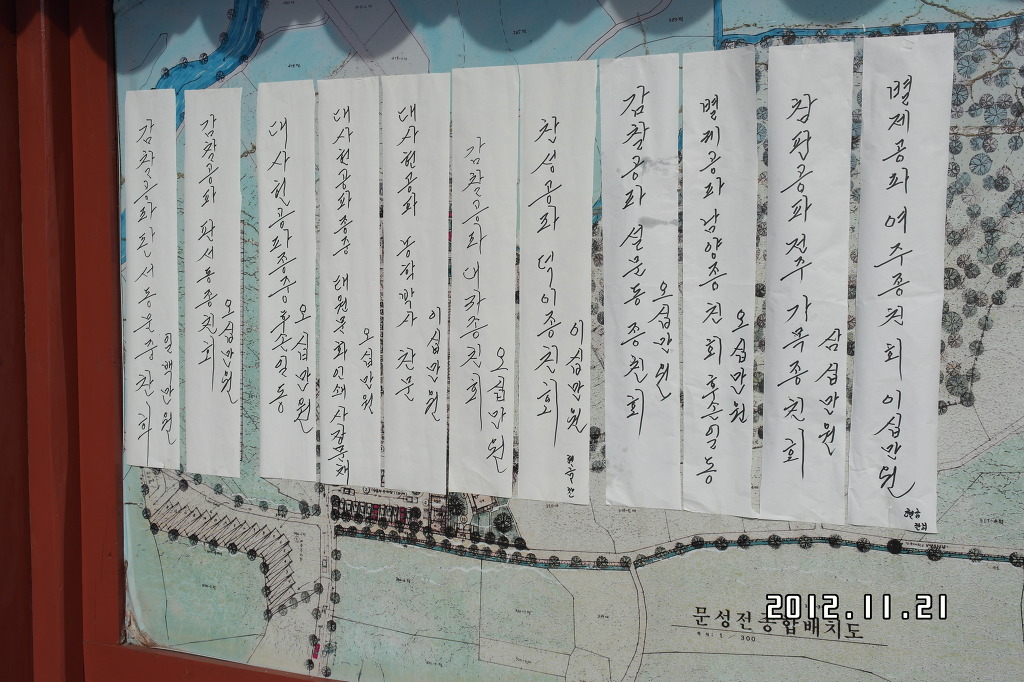 별제공파 여주종친회 이십만원
현금
참판공파 전주 가문종친회
삼십만원
별제공파 남양종친회 후손일동
오십만원
감찰공파 설문동 종친회
오십만원
찬성공파 덕이종친회
이십만원
감찰공파 대곡종친회
오십만원
대사헌공파 농학박사 찬문
이십만원
대사헌공파종중 태원문화인쇄 사장문채
오십만원
대사헌공파종중 후손일동
오십만원
감찰공파 판서동종친회
오십만원
감찰공파판서동문중 찬
일백만원
문성전종합배치도
300
2012.11.21